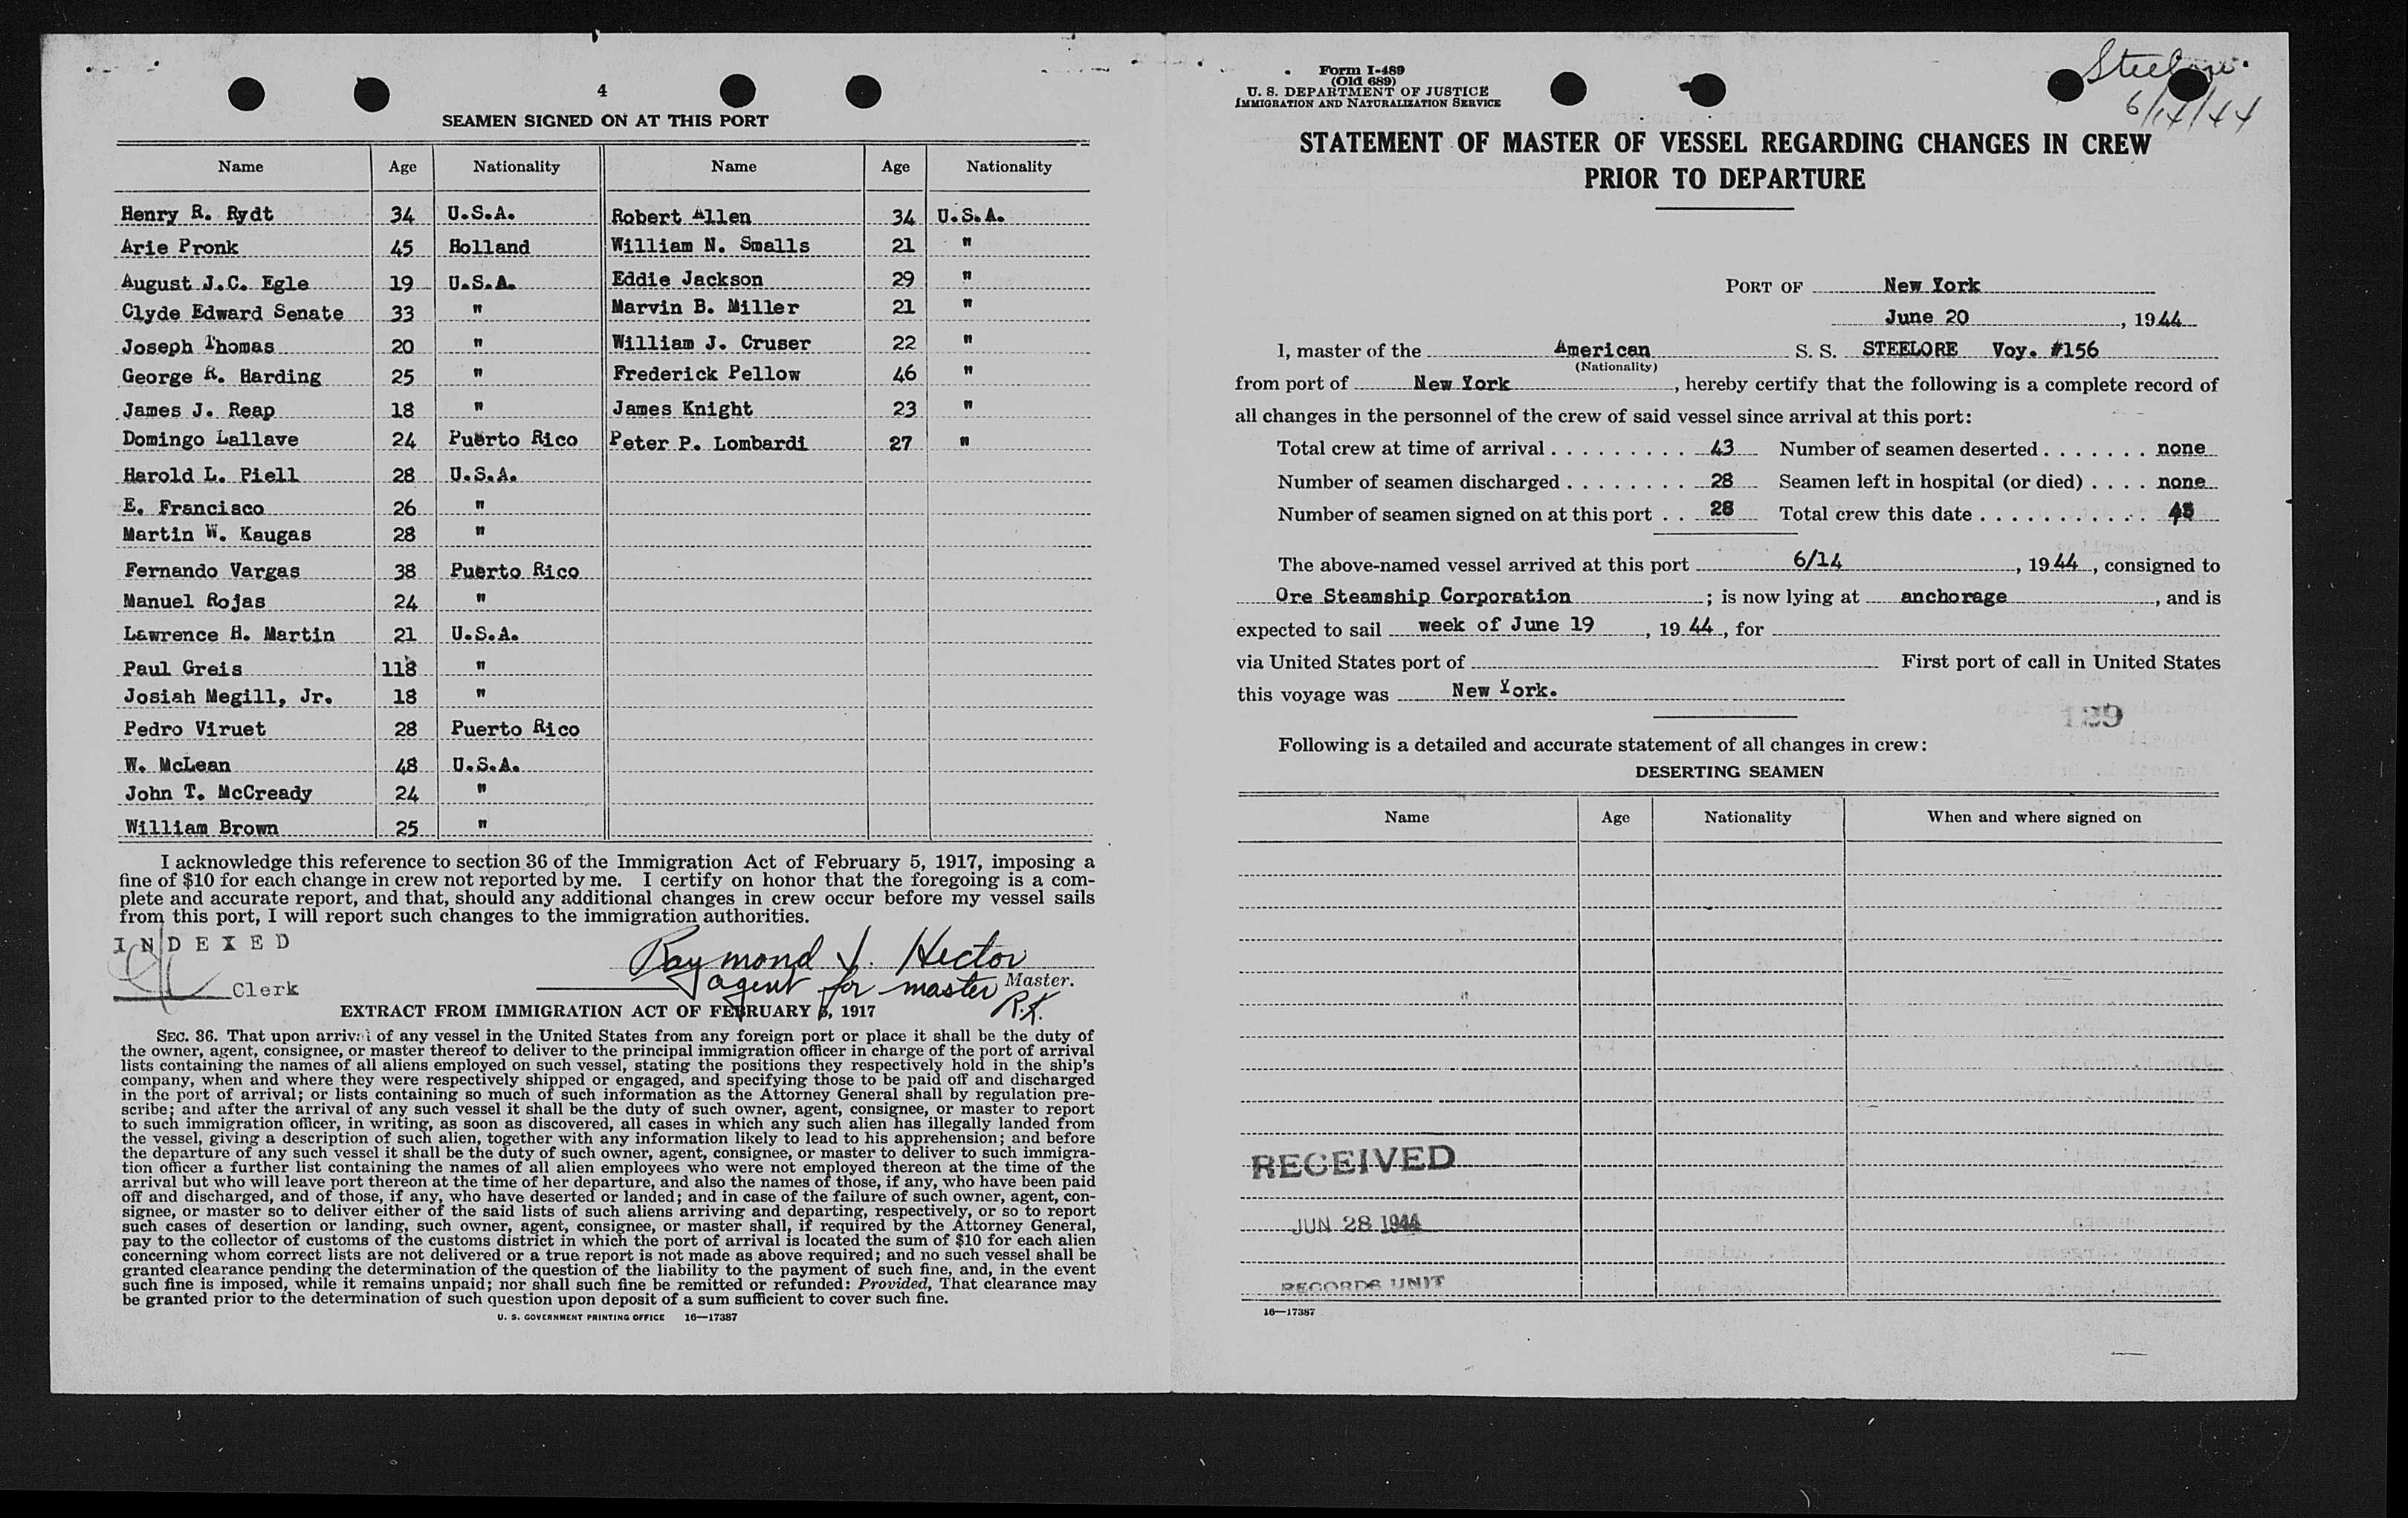 4
SEAMEN SIGNED ON AT THIS PORT
Name Age Nationality Name Age Nationality
Henry R. Rydt 34 U.S.A. Robert Allen 34 U.S.A.
Arie Pronk 45 Holland William N. Smalls 21 "
August J.C. Egle 19 U.S.A. Eddie Jackson 29 "
Clyde Edward Senate 33 " Marvin B. Miller 21 "
Joseph Thomas 20 " William J. Cruser 22 "
George R. Harding 25 " Frederick Pellow 46 "
James J. Reap 18 " James Knight 23 "
Domingo Lallave 24 Puerto Rico Peter P. Lombardi 27 "
Harold L. Piell 28 U.S.A.
E. Francisco 26 "
Martin W. Kaugas 28 "
Fernando Vargas 38 Puerto Rico
Manuel Rojas 24 "
Lawrence H. Martin 21 U.S.A.
Paul Greis 118 "
Josiah Megill, Jr. 18 "
Pedro Viruet 28 Puerto Rico
W. McLean 48 U.S.A.
John T. McCready 24 "
William Brown 25 "
I acknowledge this reference to section 36 of the Immigration Act of February 5, 1917, imposing a
fine of $10 for each change in crew not reported by me. I certify on honor that the foregoing is a com-
plete and accurate report, and that, should any additional changes in crew occur before my vessel sails
from this port, I will report such changes to the immigration authorities.
INDEXED
Raymond J. Hector
agent for master Master.
Clerk
R.K.
EXTRACT FROM IMMIGRATION ACT OF FEBRUARY 5, 1917
SEC. 36. That upon arrival of any vessel in the United States from any foreign port or place it shall be the duty of
the owner, agent, consignee, or master thereof to deliver to the principal immigration officer in charge of the port of arrival
lists containing the names of all aliens employed on such vessel, stating the positions they respectively hold in the ship's
company, when and where they were respectively shipped or engaged, and specifying those to be paid off and discharged
in the port of arrival; or lists containing so much of such information as the Attorney General shall by regulation pre-
scribe; and after the arrival of any such vessel it shall be the duty of such owner, agent, consignee, or master to report
to such immigration officer, in writing, as soon as discovered, all cases in which any such alien has illegally landed from
the vessel, giving a description of such alien, together with any information likely to lead to his apprehension; and before
the departure of any such vessel it shall be the duty of such owner, agent, consignee, or master to deliver to such immigra-
tion officer a further list containing the names of all alien employees who were not employed thereon at the time of the
arrival but who will leave port thereon at the time of her departure, and also the names of those, if any, who have been paid
off and discharged, and of those, if any, who have deserted or landed; and in case of the failure of such owner, agent, con-
signee, or master so to deliver either of the said lists of such aliens arriving and departing, respectively, or so to report
such cases of desertion or landing, such owner, agent, consignee, or master shall, if required by the Attorney General,
pay to the collector of customs of the customs district in which the port of arrival is located the sum of $10 for each alien
concerning whom correct lists are not delivered or a true report is not made as above required; and no such vessel shall be
granted clearance pending the determination of the question of the liability to the payment of such fine, and, in the event
such fine is imposed, while it remains unpaid; nor shall such fine be remitted or refunded: Provided, That clearance may
be granted prior to the determination of such question upon deposit of a sum sufficient to cover such fine.
U. S. GOVERNMENT PRINTING OFFICE 16—17387
Form I-489
(Old 689)
U. S. DEPARTMENT OF JUSTICE
IMMIGRATION AND NATURALIZATION SERVICE
Steelore.
6/14/44
STATEMENT OF MASTER OF VESSEL REGARDING CHANGES IN CREW
PRIOR TO DEPARTURE
PORT OF New York
June 20, 1944
I, master of the American S. S. STEELORE Voy. #156
(Nationality)
from port of New York, hereby certify that the following is a complete record of
all changes in the personnel of the crew of said vessel since arrival at this port:
Total crew at time of arrival 43 Number of seamen deserted none
Number of seamen discharged 28 Seamen left in hospital (or died) none
Number of seamen signed on at this port 28 Total crew this date 43
The above-named vessel arrived at this port 6/14, 1944, consigned to
Ore Steamship Corporation; is now lying at anchorage, and is
expected to sail week of June 19, 1944, for
via United States port of First port of call in United States
this voyage was New York.
189
Following is a detailed and accurate statement of all changes in crew:
DESERTING SEAMEN
Name Age Nationality When and where signed on
RECEIVED
JUN 28 1944
RECORDS UNIT
16—17387